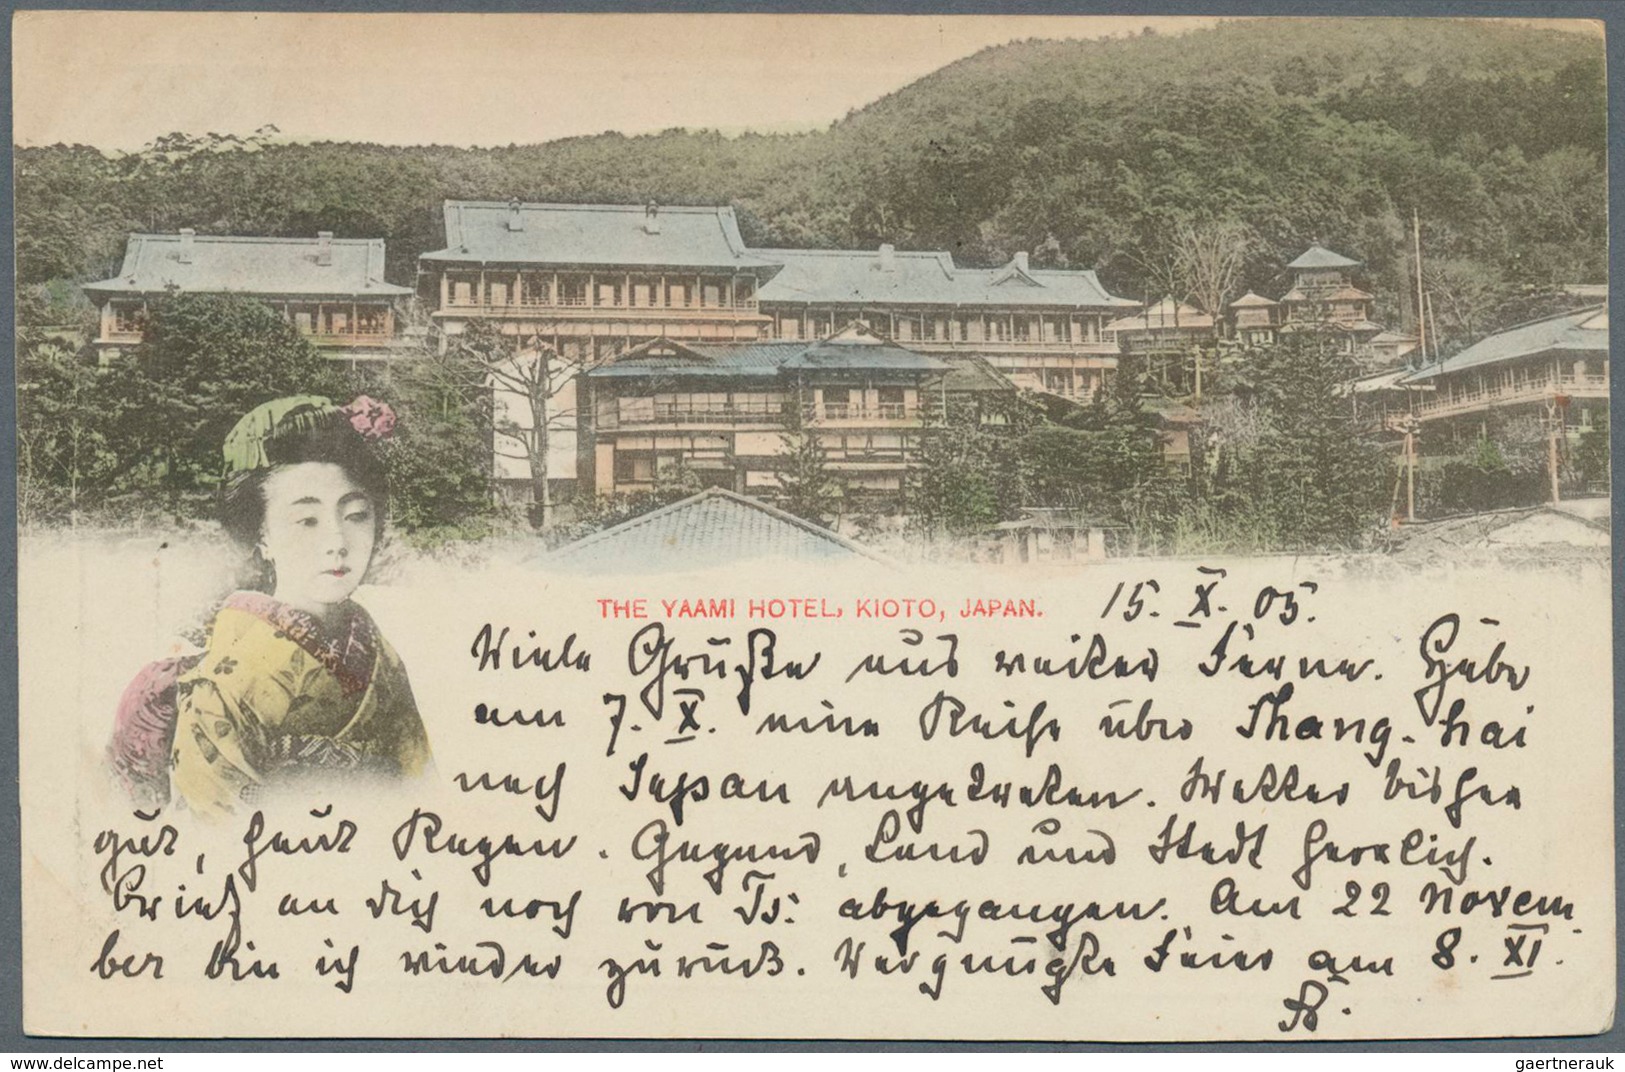 THE YAAMI HOTEL, KIOTO, JAPAN.
15. X. 05.
Viele Grüße aus weiter Ferne. Habe
am 7. X. eine Reise über Shang-hai
nach Japan angetreten. Wetter bisher
gut, heut Regen. Gegend, Land und Stadt herrlich.
Brief an dich noch von Ts. abgegangen. Am 22 Novem
ber bin ich wieder zurück. Vergnügte Feier am 8. XI.
gaertnerauk